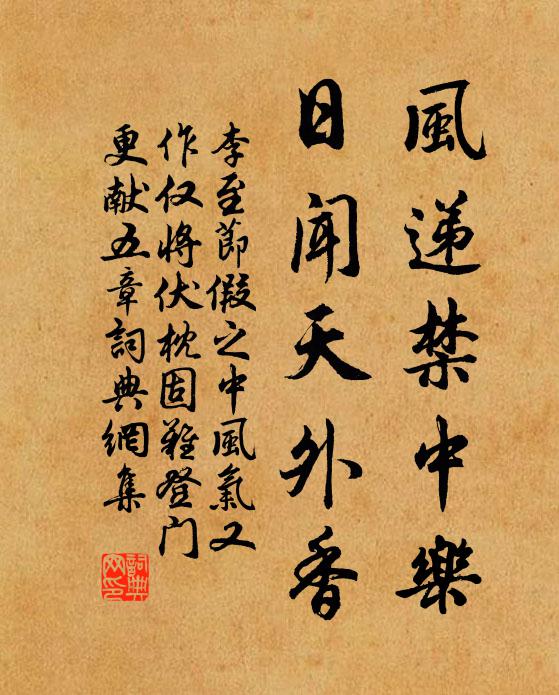 風递禁中樂
日闻天外香
李至節假之中風氣又
作仅将伏枕固難登门
更献五章詞典網集
詞典网印